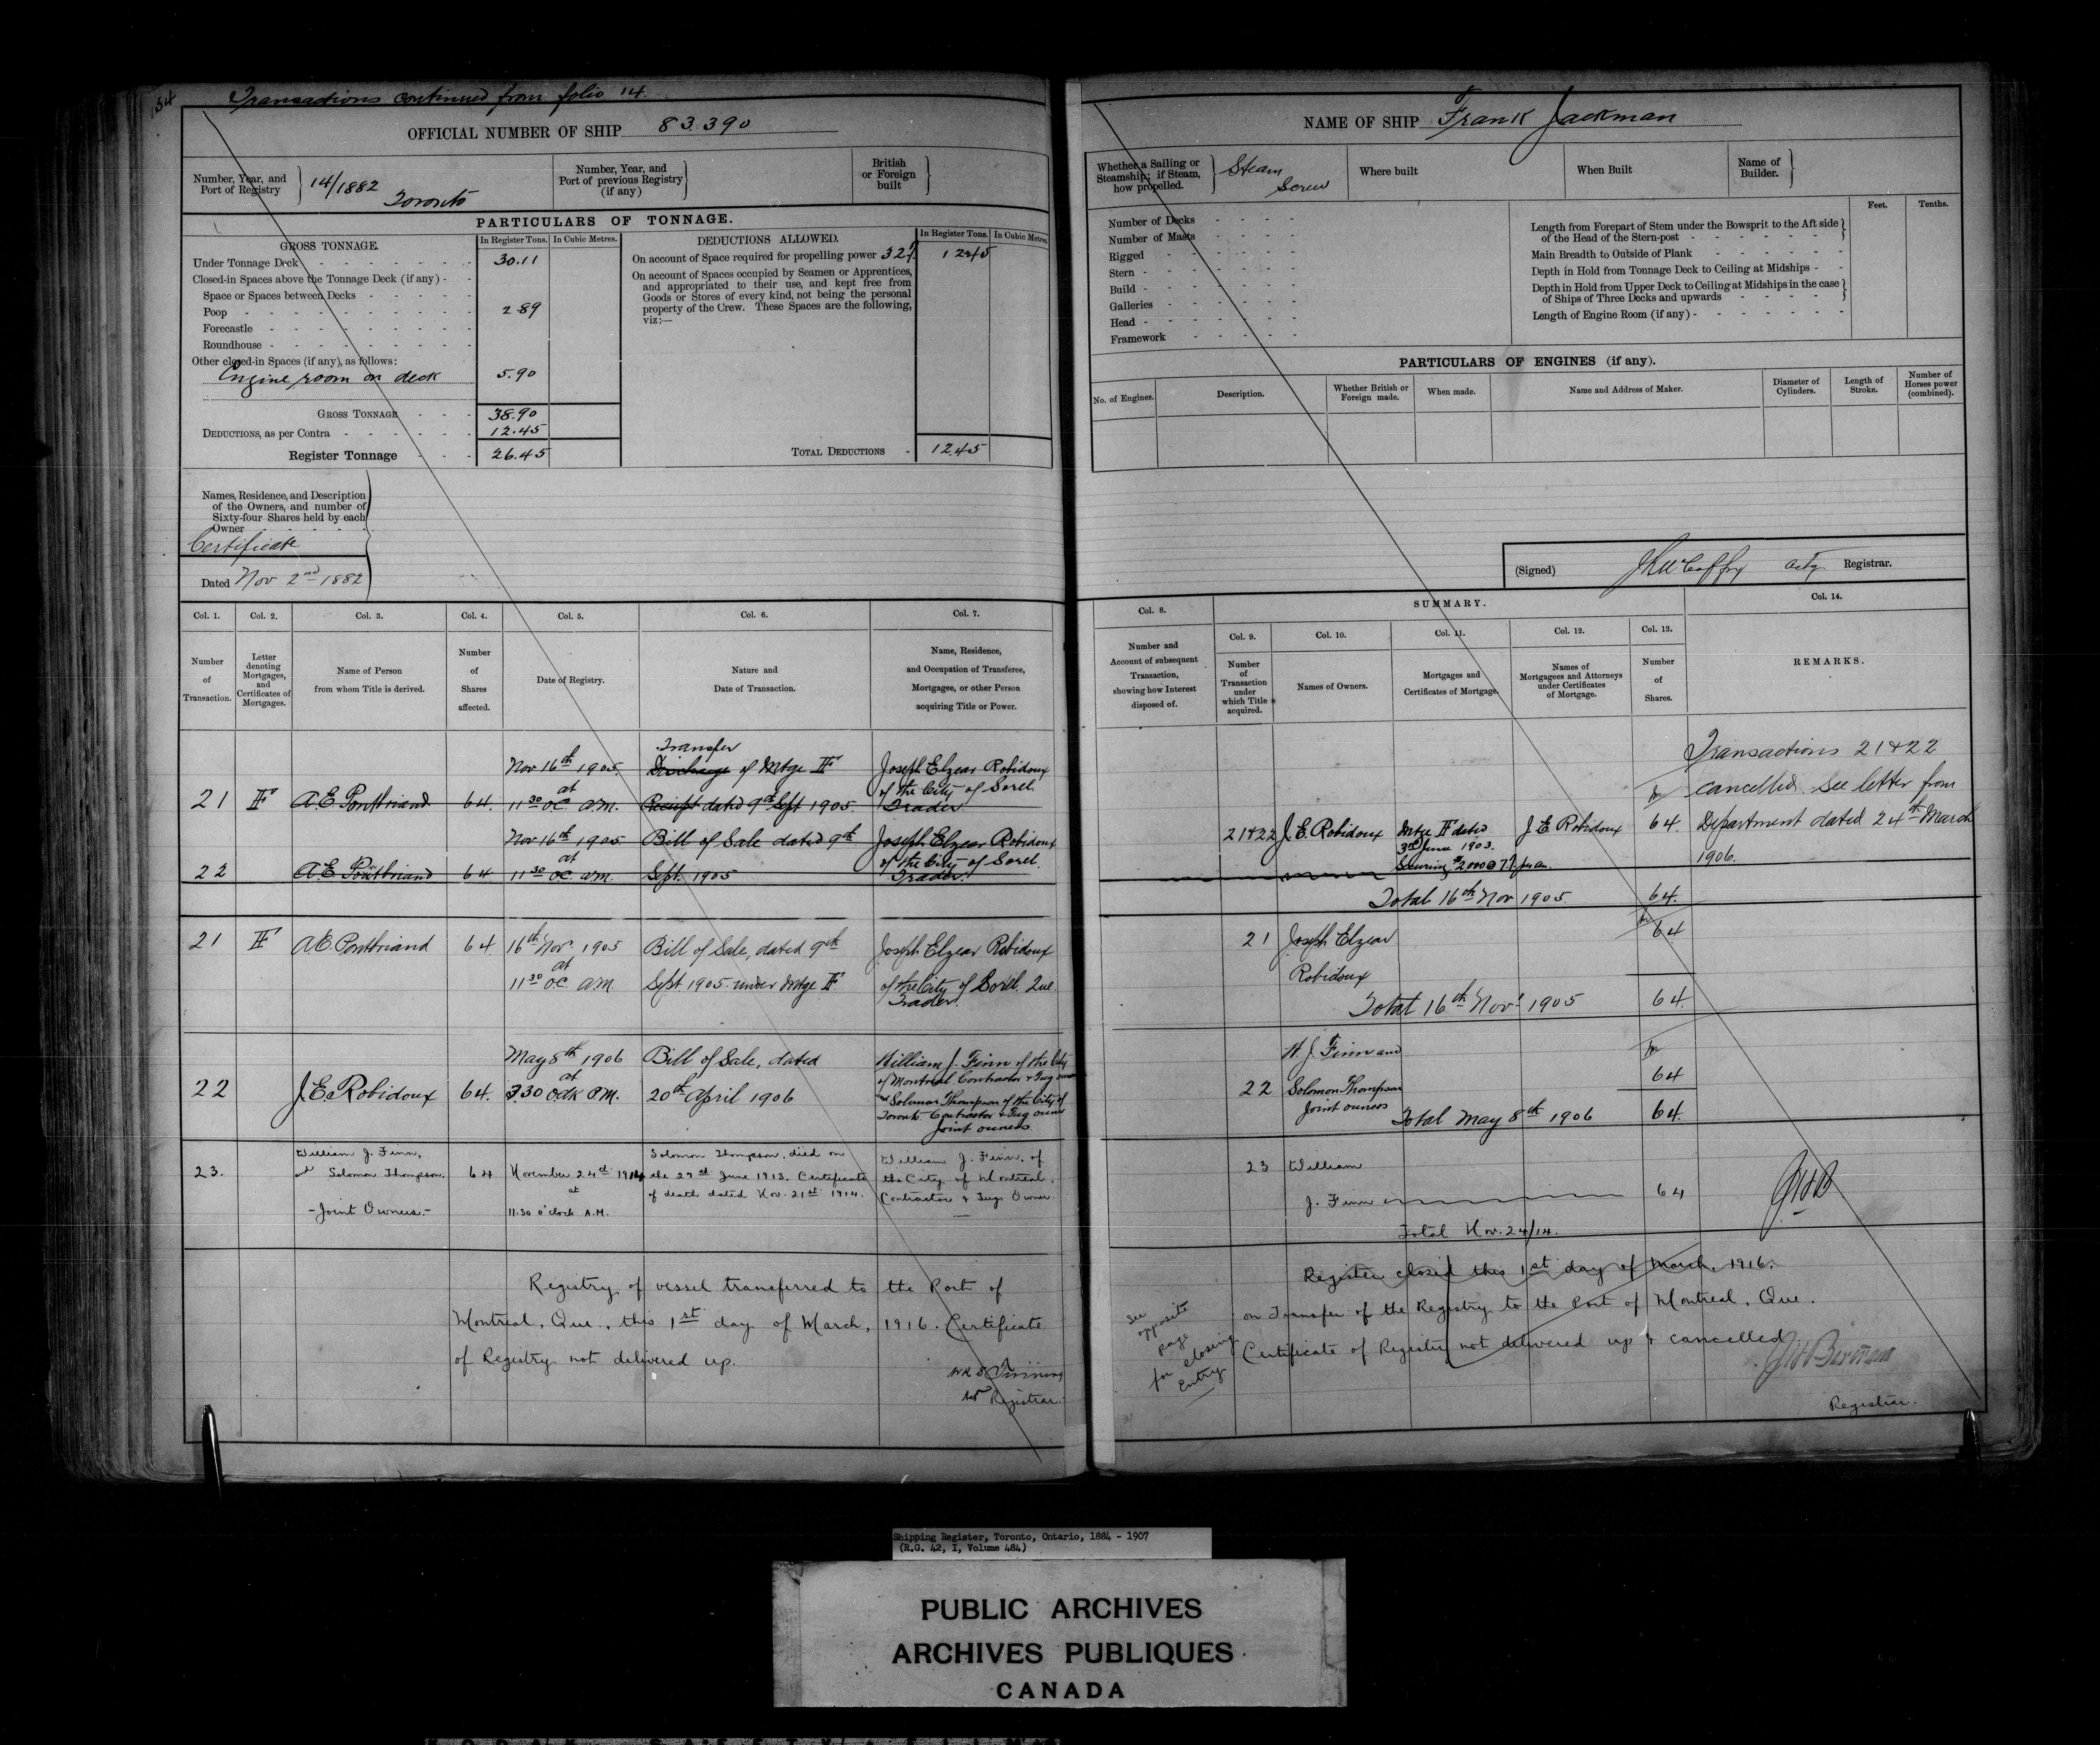 134
Transactions continued from folio 14.
OFFICIAL NUMBER OF SHIP 83.390
Number, Year, and
Port of Registry
14/1882
Toronto
Number, Year, and
Port of previous Registry
(if any)
British
or Foreign
built
PARTICULARS OF TONNAGE.
GROSS TONNAGE.
In Register Tons.
In Cubic Metres.
Under Tonnage Deck - - - - - - 30.11
Closed-in Spaces above the Tonnage Deck (if any) - -
Space or Spaces between Decks - - - - -
Poop - - - - - - - - - 2.89
Forecastle - - - - - - - -
Roundhouse - - - - - - - -
Other closed-in Spaces (if any), as follows:
Engine room on deck 5.90
GROSS TONNAGE - - - 38.90
DEDUCTIONS, as per Contra - - - - - - 12.45
Register Tonnage - - - 26.45
DEDUCTIONS ALLOWED.
In Register Tons.
In Cubic Metres
On account of Space required for propelling power 32% 12.45
On account of Spaces occupied by Seamen or Apprentices,
and appropriated to their use, and kept free from
Goods or Stores of every kind, not being the personal
property of the Crew. These Spaces are the following,
viz:—
TOTAL DEDUCTIONS - 12.45
Names, Residence, and Description
of the Owners, and number of
Sixty-four Shares held by each
Owner - - - - -
Certificate
Dated Nov 2nd 1882
Col. 1.
Col. 2.
Col. 3.
Col. 4.
Col. 5.
Col. 6.
Col. 7.
Number
of
Transaction.
Letter
denoting
Mortgages,
and
Certificates of
Mortgages.
Name of Person
from whom Title is derived.
Number
of
Shares
affected.
Date of Registry.
Nature and
Date of Transaction.
Name, Residence,
and Occupation of Transferee,
Mortgagee, or other Person
acquiring Title or Power.
21 F A.E. Pontbriand 64.
Nov 16th 1905.
at
11 30 O.C. A.M.
Transfer
Discharge of Mtge F
Receipt dated 9th Sept 1905
Joseph Elzear Robidoux
of the City of Sorel
Trader
22 A.E. Pontbriand 64
Nov 16th 1905
at
11 30 O.C. A.M.
Bill of Sale dated 9th
Sept. 1905
Joseph Elzear Robidoux
of the City of Sorel
Trader.
21 F A.E. Pontbriand 64
16th Nov. 1905
at
11 30 O.C. A.M.
Bill of Sale, dated 9th
Sept. 1905 under Mtge F
Joseph Elzear Robidoux
of the City of Sorel. Que.
Trader.
22 J.E. Robidoux 64.
May 8th 1906
at
3.30 OClk P.M.
Bill of Sale, dated
20th April 1906
William J. Finn of the City
of Montreal Contractor & Tug owner
and Solomon Thompson of the City of
Toronto Contractor & Tug owner
Joint owners
23.
William J. Finn,
and Solomon Thompson.
-Joint Owners.-
64
November 24th 1914
at
11.30 o'clock A.M.
Solomon Thompson, died on
the 29th June 1913. Certificate
of death dated Nov. 21st 1914.
William J. Finn, of
the City of Montreal,
Contractor & Tug Owner.
Registry of vessel transferred to the Port of
Montreal, Que., this 1st day of March, 1916. Certificate
of Registry not delivered up.
Registrar.
NAME OF SHIP Frank Jackman
Whether a Sailing or
Steamship; if Steam,
how propelled.
Steam
Screw
Where built
When Built
Name of
Builder.
Number of Decks - - - -
Number of Masts - - - -
Rigged - - - - -
Stern - - - - - -
Build - - - - - -
Galleries - - - - -
Head - - - - - -
Framework - - - -
Feet.
Tenths.
Length from Forepart of Stem under the Bowsprit to the Aft side
of the Head of the Stern-post - - - - - -
Main Breadth to Outside of Plank - - - - -
Depth in Hold from Tonnage Deck to Ceiling at Midships - -
Depth in Hold from Upper Deck to Ceiling at Midships in the case
of Ships of Three Decks and upwards - - - - -
Length of Engine Room (if any) - - - - - -
PARTICULARS OF ENGINES (if any).
No. of Engines.
Description.
Whether British or
Foreign made.
When made.
Name and Address of Maker.
Diameter of
Cylinders.
Length of
Stroke.
Number of
Horses power
(combined).
(Signed) Actg Registrar.
SUMMARY.
Col. 8.
Col. 9.
Col. 10.
Col. 11.
Col. 12.
Col. 13.
Col. 14.
Number and
Account of subsequent
Transaction,
showing how Interest
disposed of.
Number
of
Transaction
under
which Title
acquired.
Names of Owners.
Mortgages and
Certificates of Mortgage.
Names of
Mortgagees and Attorneys
under Certificates
of Mortgage.
Number
of
Shares.
REMARKS.
21&22 J.E. Robidoux
Mtge F dated
3rd June 1903.
Securing $2000 @ 7% per an.
J.E. Robidoux 64.
Total 16th Nov 1905. 64.
Transactions 21&22
cancelled. See letter from
Department dated 24th March
1906.
21 Joseph Elzear
Robidoux
64
Total 16th Nov. 1905 64.
22
W. J. Finn and
Solomon Thompson
Joint owners
64
Total May 8th 1906 64.
23 William
J. Finn 64
Total Nov. 24/14.
Register closed this 1st day of March, 1916.
on Transfer of the Registry to the Port of Montreal, Que.
Certificate of Register not delivered up & cancelled
Registrar.
See
opposite
page
for closing
Entry
Shipping Register, Toronto, Ontario, 1884 - 1907
(R.G. 42, I, Volume 484)
PUBLIC ARCHIVES
ARCHIVES PUBLIQUES
CANADA